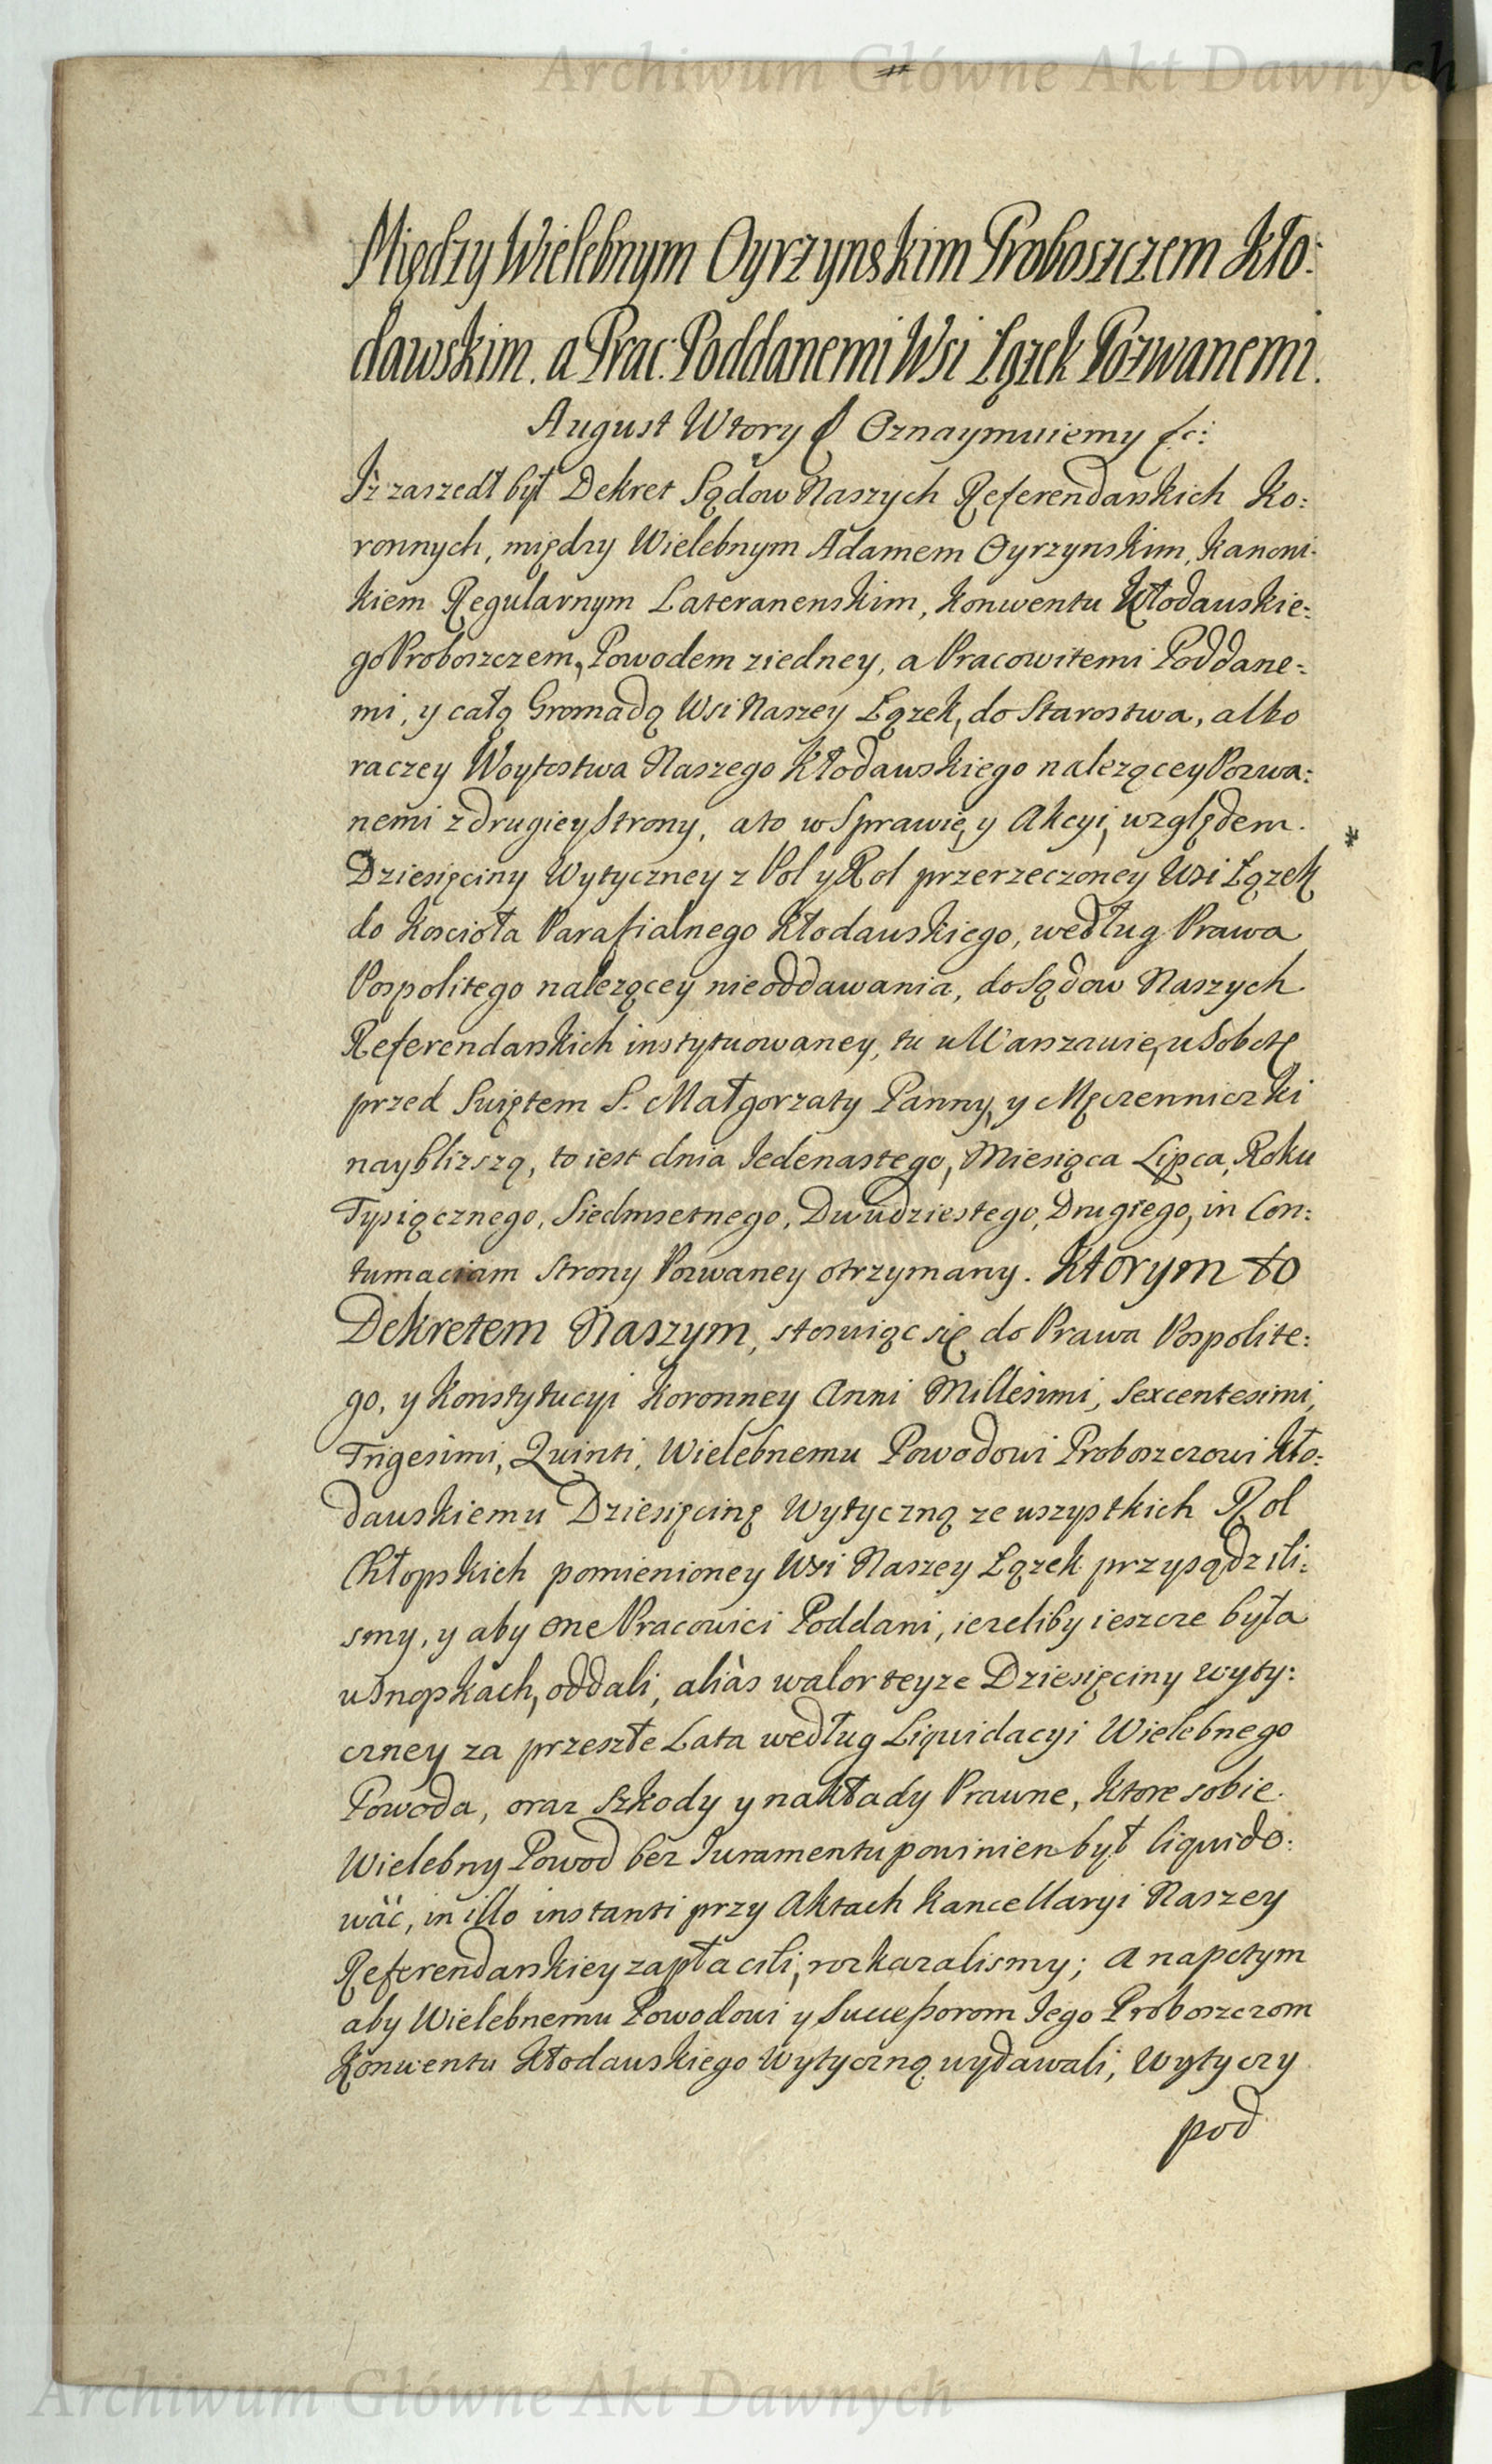 Archiwum Główne Akt Dawnych
Między Wielebnym Oyrzynskim Proboszczem Kło:
dawskim. a Prac: Poddanemi Wsi Łązek Pozwanemi.
August Wtory & Oznaymuiemy &c:
Iż zaszedł był Dekret Sądow Naszych Referendarskich Ko:
ronnych, między Wielebnym Adamem Oyrzynskim, Kanoni:
kiem Regularnym Lateranenskim, Konwentu Kłodawskie:
go Proboszczem, Powodem ziedney, a Pracowitemi Poddane:
mi, y całą Gromadą Wsi Naszey Łązek, do Starostwa, albo
raczey Woytostwa Naszego Kłodawskiego nalezącey Pozwa:
nemi z drugiey Strony, ato w Sprawie, y Akcyi, względem.
Dziesięciny Wytyczney z Pol y Rol przerzeczoney Wsi Łązek
do Koscioła Parafialnego Kłodawskiego, według Prawa
Pospolitego nalezącey nieoddawania, do Sądow Naszych
Referendarskich instytuowaney, tu w Warszawie, w Sobotę
przed Swiętem S. Małgorzaty Panny, y Męczenniczki
naybliszszą, to iest dnia Iedenastego, Miesiąca Lipca, Roku
Tysiącznego, Siedmsetnego, Dwudziestego, Drugiego, in Con:
tumaciam Strony Pozwaney otrzymany. Ktorym to
Dekretem Naszym, stosuiąc się do Prawa Pospolite:
go, y Konstytucyi Koronney Anni Millesimi, Sexcentesimi,
Trigesimi, Quinti, Wielebnemu Powodowi Proboszczowi Kło:
dawskiemu Dziesięcinę Wytyczną ze wszystkich Rol
Chłopskich pomienioney Wsi Naszey Łązek przysądzili:
smy, y aby one Pracowici Poddani, iezeliby ieszcze była
w Snopkach, oddali, aliàs walor teyze Dziesięciny wyty:
czney za przeszłe Lata według Liquidacyi Wielebnego
Powoda, oraz Szkody y nakłady Prawne, ktore sobie
Wielebny Powod bez Iuramentu powinien był liquido:
wać, in illo instanti przy Aktach Kancellaryi Naszey
Referendarskiey zapłacili, rozkazalismy; A napotym
aby Wielebnemu Powodowi y Successorom Iego Proboszczom
Konwentu Kłodawskiego Wytyczną wydawali, Wytyczy
pod
Archiwum Główne Akt Dawnych